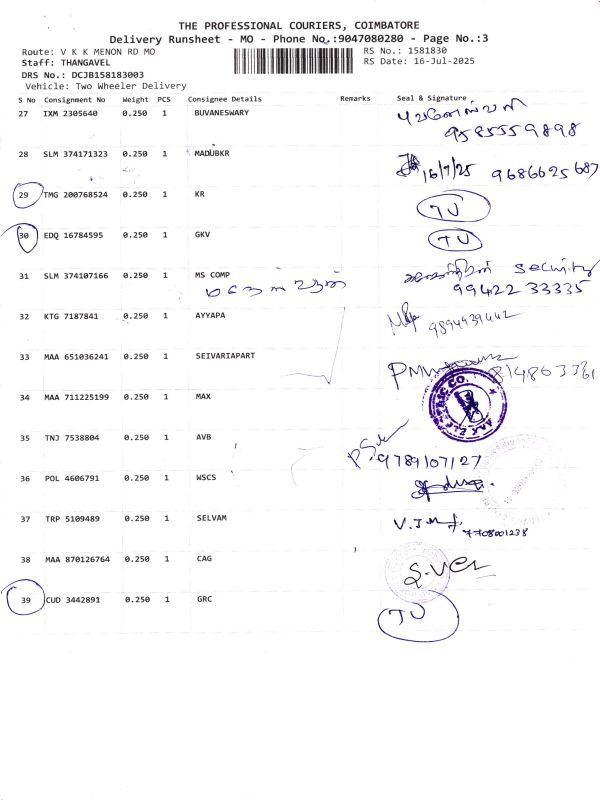 THE PROFESSIONAL COURIERS, COIMBATORE
Delivery Runsheet - MO - Phone No.:9047080280 - Page No.:3
Route: V K K MENON RD MO
RS No.: 1581830
Staff: THANGAVEL
RS Date: 16-Jul-2025
DRS No.: DCJB158183003
Vehicle: Two Wheeler Delivery
S No Consignment No Weight PCS Consignee Details Remarks Seal & Signature
27 IXM 2305640 0.250 1 BUVANESWARY புவனேஸ்வரி
9585559898
28 SLM 374171323 0.250 1 MADUBKR 16/7/25 9686625687
29 TMG 200768524 0.250 1 KR TU
30 EDQ 16784595 0.250 1 GKV TU
31 SLM 374107166 0.250 1 MS COMP security
99422 33335
32 KTG 7187841 0.250 1 AYYAPA 9894939442
33 MAA 651036241 0.250 1 SEIVARIAPART 814863361
34 MAA 711225199 0.250 1 MAX
35 TNJ 7538804 0.250 1 AVB 9789107127
36 POL 4606791 0.250 1 WSCS
37 TRP 5109489 0.250 1 SELVAM
7708001238
38 MAA 870126764 0.250 1 CAG
39 CUD 3442891 0.250 1 GRC TU